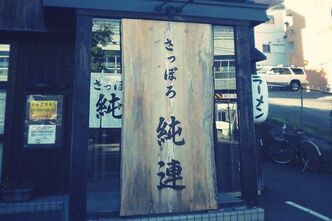 さっぽろ
純連
さっぽろ
純
ラーメン